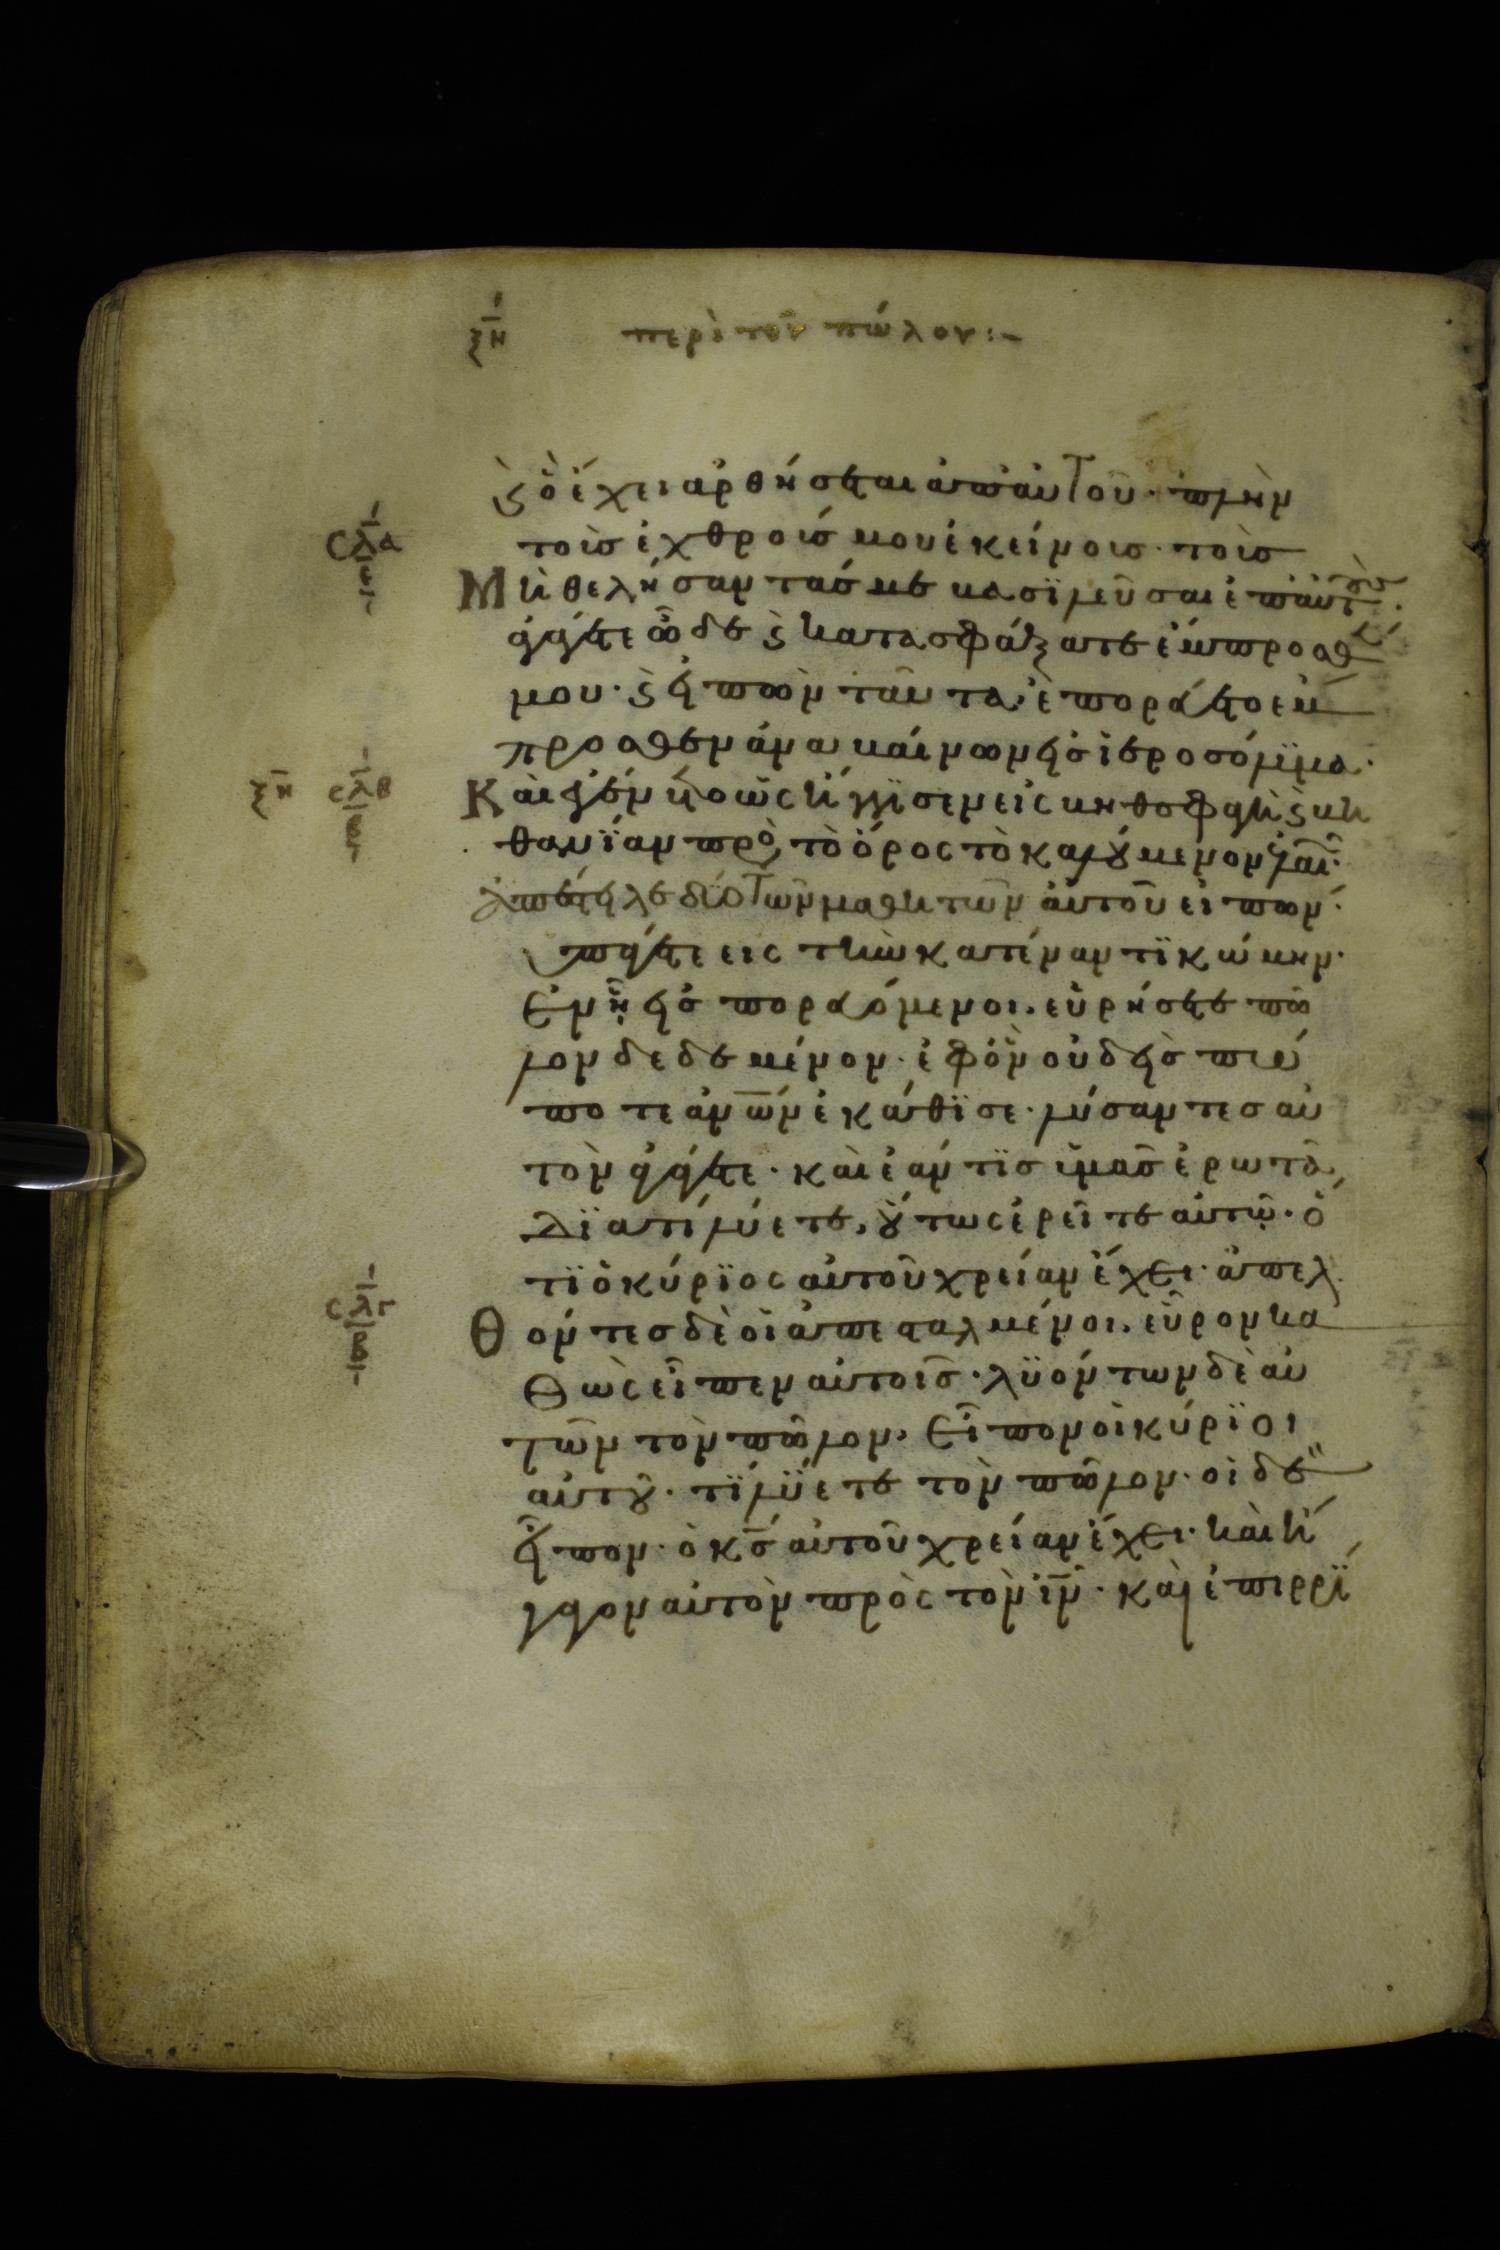 ξη περὶ τοῦ πώλου:-
ϛ ὃ ἔχει ἀρθήσεται ἀπ' αὐτοῦ· πλὴν
σλα
ε
τοὺσ ἐχθρούσ μου ἐκείνουσ· τοὺσ
Μὴ θελήσαντάσ με βασϊλεῦσαι ἐπ' αὐτοὺσ·
ἀγάγετε ὧδε ϛ κατασφάξατε ἔμπροσθέν
μου· ϛ εἰπὼν ταῦτα, ἐπορεύετο ἔμ
προσθεν ἀναβαίνων εἰσ ἱεροσόλυμα·
ξη σλβ
β
Καὶ ἐγένετο ὡς ἤγγϊσεν εἰς βηθσφαγὴ ϛ βη
θανΐαν πρὸς τὸ ὄρος τὸ καλούμενον ἐλαιῶν·
ἀπέστειλε δύο τῶν μαθητῶν αὐτοῦ εἰπων·
ὑπάγετε εις τὴν κατέναντϊ κώμην·
Ἐν ᾗ εἰσπορευόμενοι, εὑρήσετε πῶ
λον δεδεμένον· ἐφ' ὃν οὐδεὶσ πώ
ποτε ἀνων ἐκάθϊσε· λύσαντεσ αὐ
τὸν ἀγάγετε· καὶ ἐάν τϊσ ὑμᾶσ ἐρωτᾶ,
Δϊατί λύετε, οὕτως ἐρεῖτε αὐτῷ· ὅ
τϊ ὁ κύρϊος αὐτοῦ χρείαν ἔχει· ἀπελ
σλγ
β
Θόντεσ δὲ οἱ ἀπεσταλμένοι, εὗρον κα
Θὼς εἶπεν αὐτοῖσ· λϋόντων δὲ αὐ
τῶν τὸν πῶλον, Εἶπον οἱ κύρϊοι
αὐτοῦ· τΐ λύετε τὸν πῶλον· οἱ δὲ
εἶπον· ὁ κσ αὐτοῦ χρείαν ἔχει· καὶ ἤ
γαγον αὐτὸν πρὸς τὸν ιν· καὶ ἐπιρρΐ